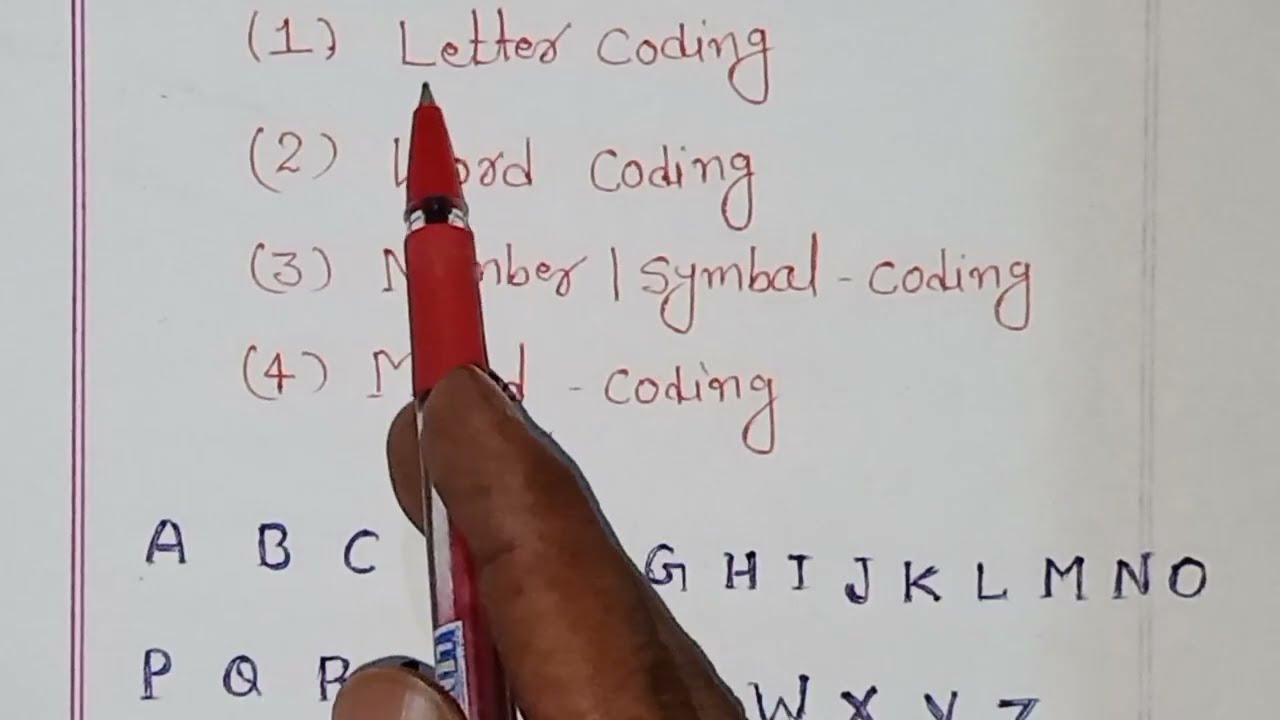 (1) Letter Coding
(2) Word Coding
(3) Number | Symbal - coding
(4) - coding
A B C G H I J K L M N O
P Q R W X Y Z